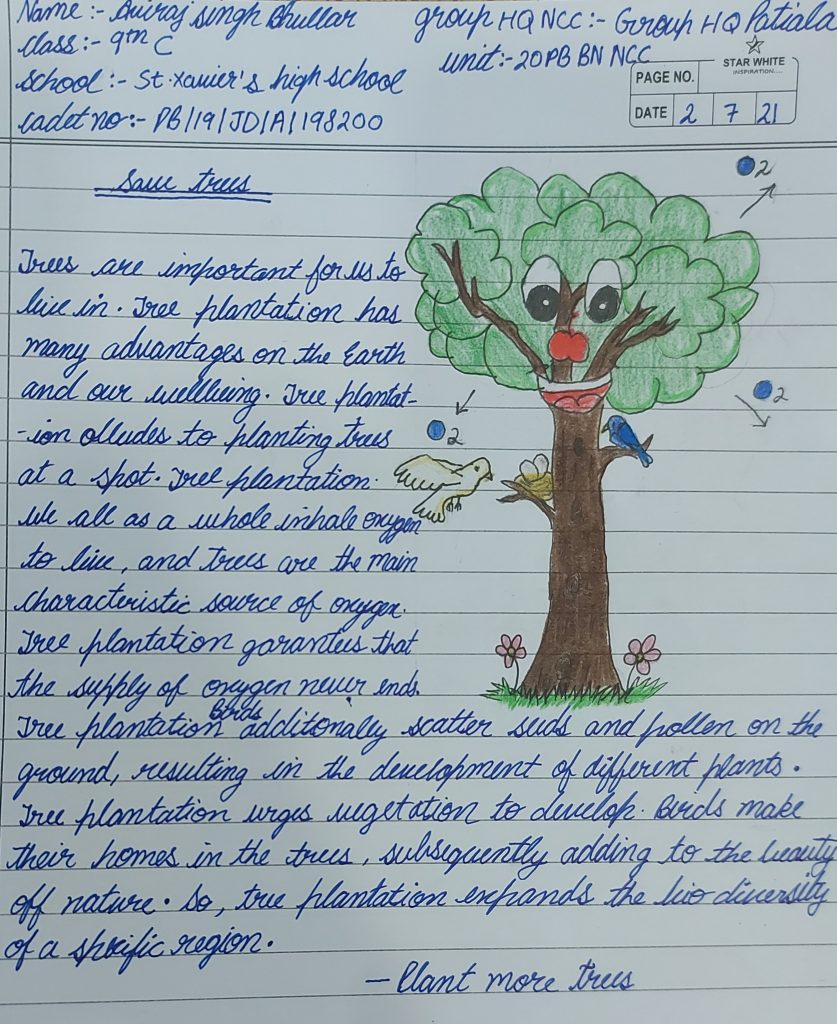 Name :- Aviraj singh Bhullar
group HQ NCC :- Group HQ Patiala
class :- 9th C
unit :- 20 PB BN NCC
STAR WHITE
INSPIRATION....
school :- St. xavier's high school
PAGE NO.
cadet no :- PB/19/JD/A/198200
DATE 2 7 21
Save trees
2
Trees are important for us to
live in. Tree plantation has
many advantages on the Earth
and our wellbeing. Tree plantat-
2
-ion olludes to planting trees
2
at a spot. Tree plantation.
We all as a whole inhale oxygen
to live, and trees are the main
characteristic source of oxygen.
Tree plantation garantees that
the supply of oxygen never ends.
Tree plantation Birds additonally scatter seeds and pollen on the
ground, resulting in the development of different plants.
Tree plantation urges vegetation to develop. Birds make
their homes in the trees, subsequently adding to the beauty
off nature. So, tree plantation expands the bio diversity
of a spcific region.
- Plant more trees